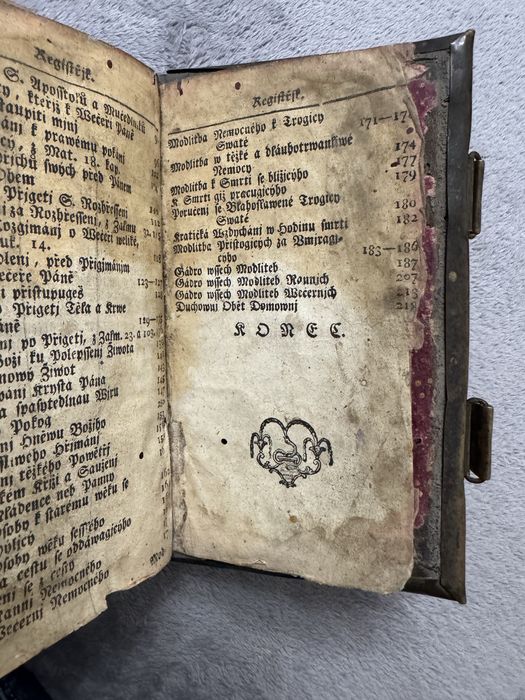 Regiſtřjk.
S. Apoſſtolů a Mučedlnjků
y, kteřjž k Večeři Páně
ſtaupiti mjnj
ánj k prawému pokánj
y, z Mat. 18. kap.
řjchů ſwých před Pánem
Bohem
Přigetj S. Rozhřeſſenj
j za Rozhřeſſenj, z Žalmu 32.
Rozgjmánj o Wečeři weliké,
uk. 14.
dlenj, před Přigjmánjm
ečeře Páně 123—127
j přiſtupugeš
o Přigetj Těla a Krwe
áně 129—
nj po Přigetj, z Žalm. 23. a 103.
Boži ku Polepſſenj Života
nowý Život
wánj Kryſta Pána
a ſpaſytedlnau Wjru
Pokog
nj Hněwu Božjho
ſliweho Hřjmánj
nj těžkého Powětřj
kém Křjži a Saužení
Mládence neb Panny
ſoby k ſtarému wěku ſe
hýlicý
ſoby wěku ſeſſlého
a ceſtu ſe oddáwagjcýho
enj ſe z ceſty
Rannj Nemocného
Wečernj Nemocného
Mod
Regiſtřjk.
Modlitba Nemocného k Trogicy
Swaté 171—17
Modlitba w těžké a dlauhotrwanliwé
Nemocy 174
Modlitba k Smrti ſe bližjcýho 177
K Smrti giž pracugjcýho 179
Poručenj ſe Blahoſlawené Trogicy
Swaté 180
Kratičká Wzdychánj w Hodinu ſmrti 182
Modlitba Přiſtogjcých za Vmjragj-
cýho 183—186
Gádro wſſech Modliteb 187
Gádro wſſech Modliteb Rannjch 207
Gádro wſſech Modliteb Wečernjch 213
Duchownj Obět Domownj 218
KONEC.